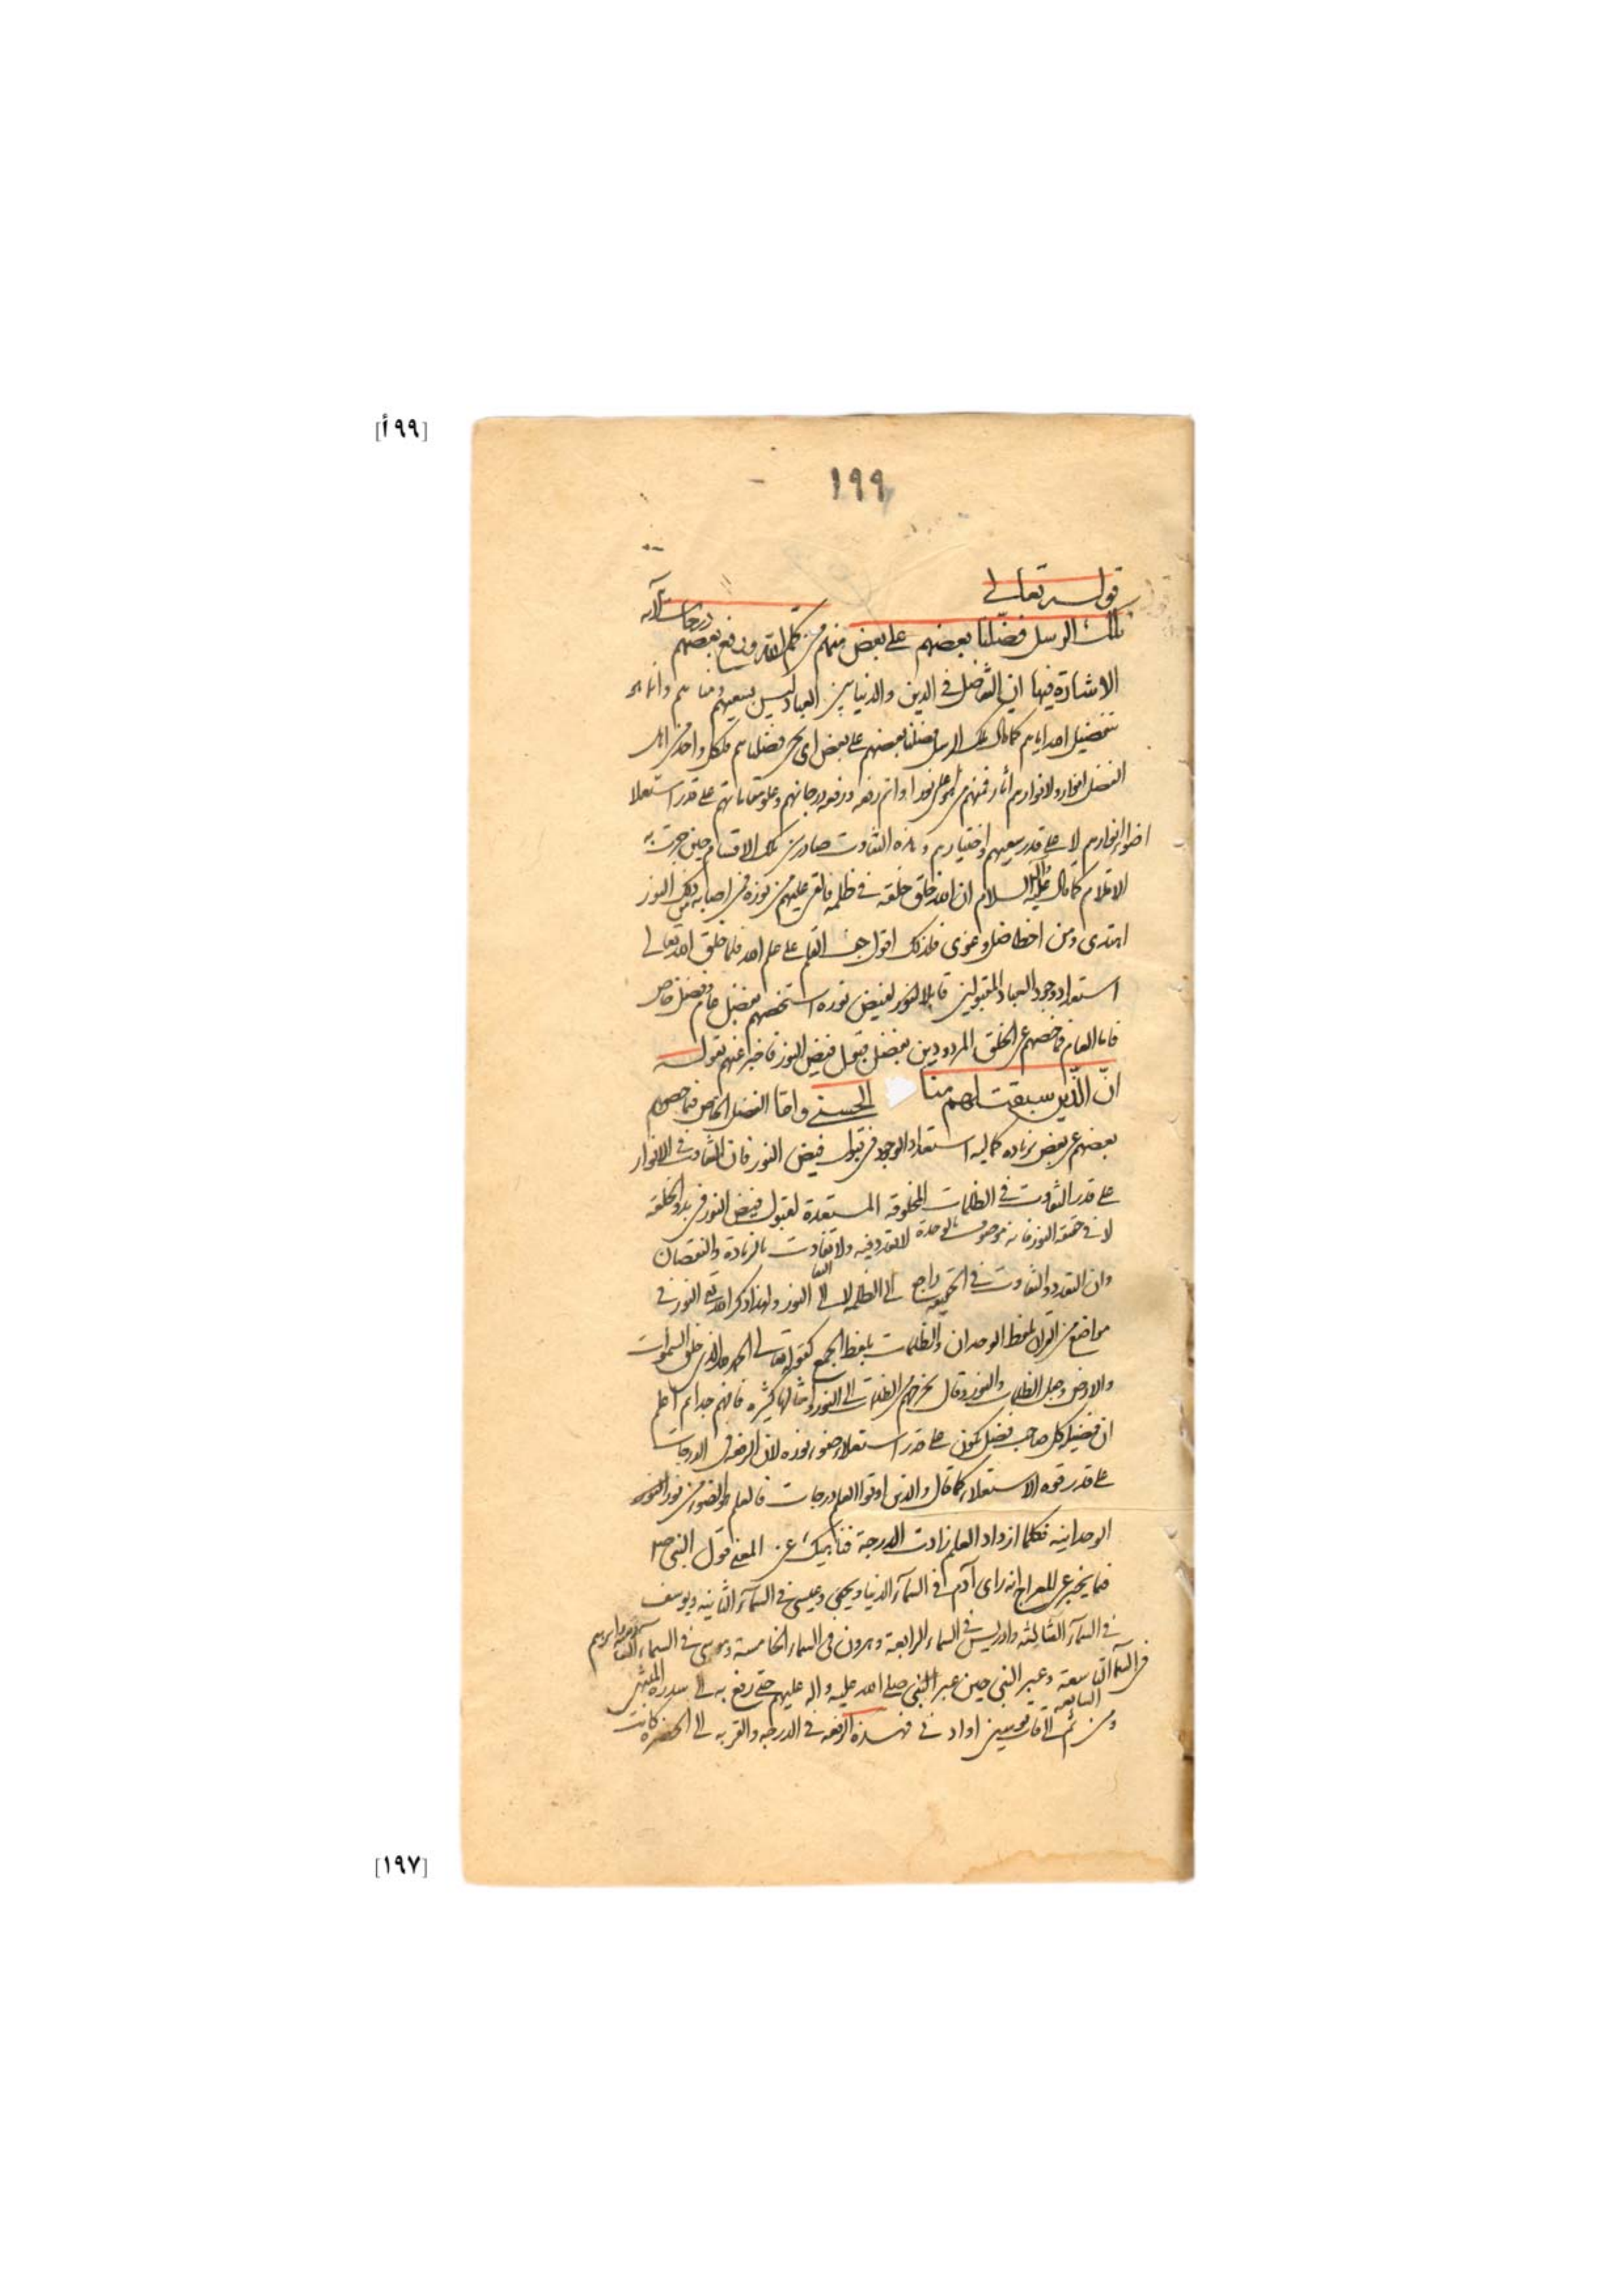 [١٩٩أ]
١٩٩
قوله تعالى
تلك الرسل فضلنا بعضهم على بعض منهم من كلم الله ورفع بعضهم درجات الآية
الاشارة فيها ان التفاضل في الدين والدنيا بين العباد ليس بسعيهم ومناهم وانما هو
بتفضيل الله اياهم كما قال تلك الرسل فضلنا بعضهم على بعض اى نحن فضلناهم فلكل واحد من اهل
الفضل انوار ولانوارهم آثار فمنهم من هو اعلى نورا واتم رفعة ورفعة درجاتهم وعلو مقاماتهم على قدر استعلاء
اضواء انوارهم لا على قدر سعيهم واختيارهم وهذه التفاوت صادر من تلك الاقسام حين جرت به
الاقلام كما قال عليه السلام ان الله خلق خلقه في ظلمة فالقى عليهم من نوره فمن اصابه من ذلك النور
اهتدى ومن اخطا ضل وغوى فلذلك اقول جف القلم على علم الله فلما خلق الله تعالى
استعداد وجود العباد المقبولين قابلا لنور لفيض نوره استخصهم بفضل عام وفضل خاص
فاما العام فما خصهم عن الخلق المردودين بفضل قبول فيض النور فاخبر عنهم بقوله
انّ الّذين سبقت لهم منا الحسنى واما الفضل الخاص فما خصهم
بعضهم عن بعض بزيادة كمالية استعداد الوجود في قبول فيض النور فان التفاوت في الانوار
على قدر التفاوت في الظلمات المخلوقة المستعدة لقبول فيض النور في بدو الخلقة
لا في حقيقة النور فانه موصوف بالوحدة لا تعدد فيه ولا تفاوت بالزيادة والنقصان
وان التعدد والتفاوت في الحقيقة راجع الى الظلمة لا الى النور ولهذا ذكر الله تعالى النور في
مواضع من القرآن بلفظ الوحدان والظلمات بلفظ الجمع كقوله تعالى الحمد لله الذى خلق السموات
والارض وجعل الظلمات والنور وقال يخرجهم من الظلمات الى النور وامثالها كثيرة فافهم جدا ثم اعلم
ان فضيلة كل صاحب فضل تكون على قدر استعلاء ضوء نوره لان الرفعة في الدرجات
على قدر قوة الاستعلاء كما قال والذين اوتوا العلم درجات فالعلم هو الضوء من نور
الوحدانية فكلما ازداد العلم زادت الدرجة فناهيك عن المعنى قول النبى ص
فيما يخبر عن المعراج انه راى آدم في السمآء الدنيا ويحيى وعيسى في السمآء الثانية ويوسف
في السمآء الثالثة وادريس في السماء الرابعة وهرون في السماء الخامسة وموسى في السماء السادسة وابراهيم
في السمآء السابعة وعبر النبى حين عبر النبى صلى الله عليه واله عليهم حتى رفع به الى سدرة المنتهى
ومن ثم الى قاب قوسين او ادنى فهذه الرفعة في الدرجة والقربة الى الحضرة كانت
[١٩٧]